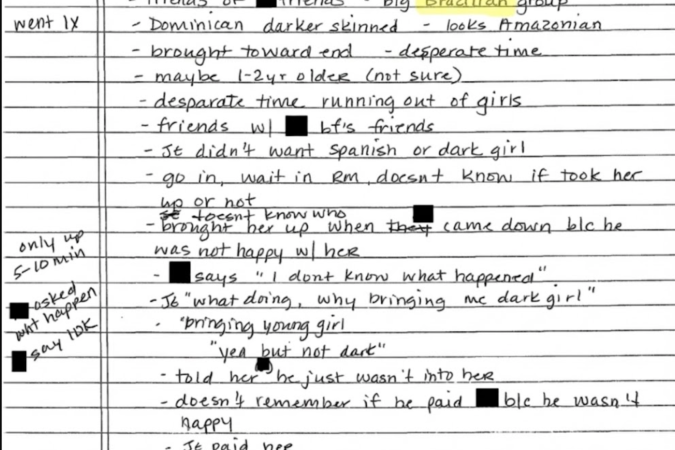 - friends of friends - big Brazilian group
went 1x - Dominican darker skinned - looks Amazonian
- brought toward end - desperate time
- maybe 1-2yr older (not sure)
- desparate time running out of girls
- friends w/ bf's friends
- JE didn't want spanish or dark girl
- go in, wait in RM, doesnt know if took her
up or not
doesnt know who
- brought her up when they came down b/c he
was not happy w/ her
only up
5-10 min
- says "I dont know what happened"
asked
what happen
say IDK
- JE "what doing, why bringing me dark girl"
- "bringing young girl
"yea but not dark"
- told her he just wasn't into her
- doesn't remember if he paid b/c he wasn't
happy
- JE paid her